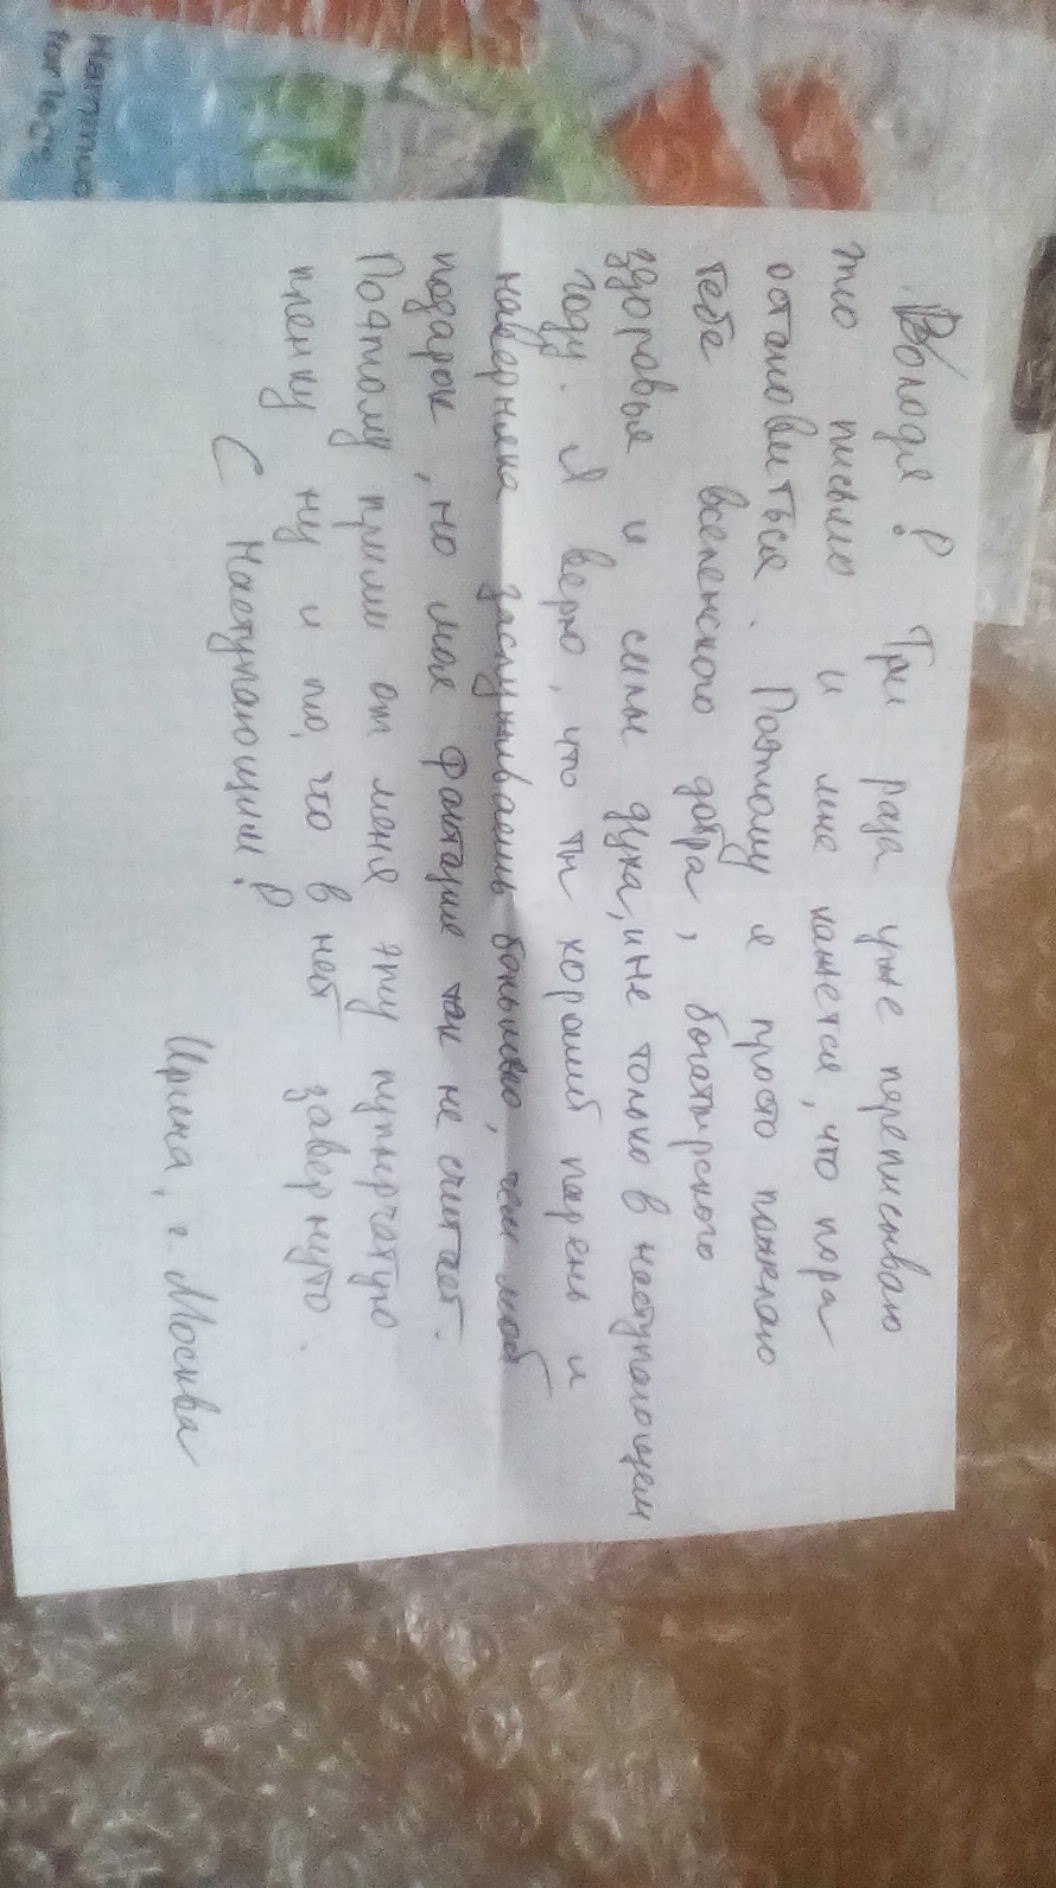 Володя! Три раза уже переписываю
это письмо и мне кажется, что пора
остановиться. Поэтому я просто пожелаю
тебе вселенского добра, богатырского
здоровья и силы духа, и не только в наступающем
году. Я верю, что ты хороший парень и
наверняка заслуживаешь большего, чем мой
подарок, но моя фантазия так не считает.
Поэтому прими от меня эту пупырчатую
пленку ну и то, что в ней завернуто.
С Наступающим!
Ирина, г. Москва